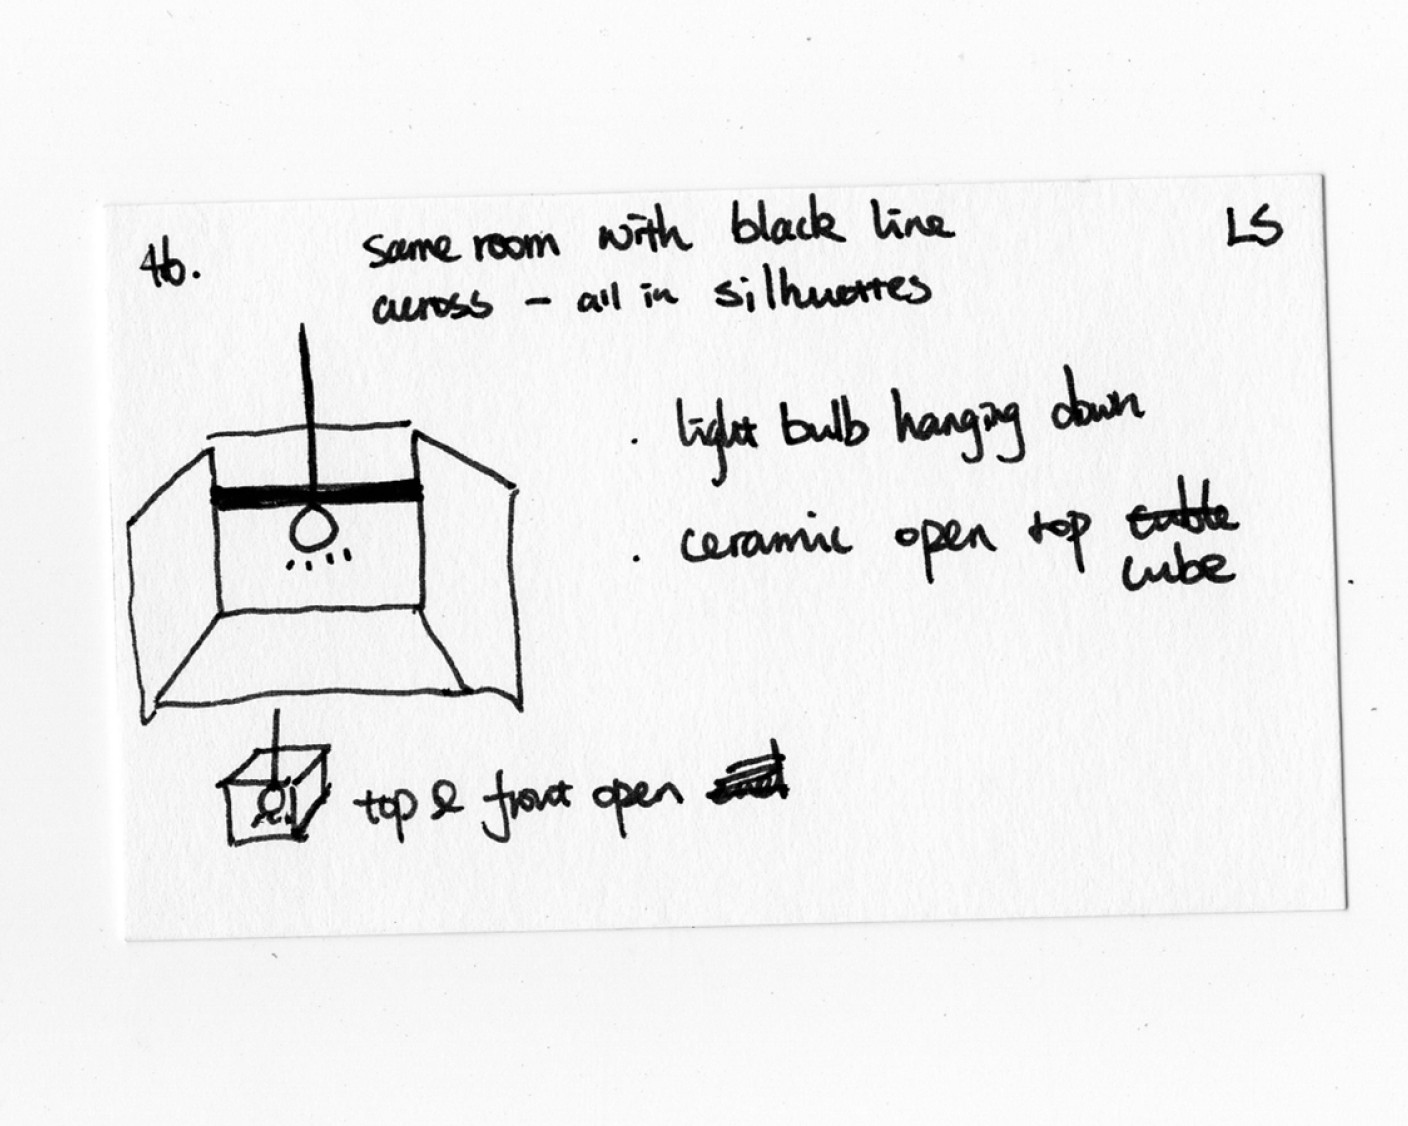 46. same room with black line LS
across - all in silhuottes
. light bulb hanging down
. ceramic open top
cube
top & front open